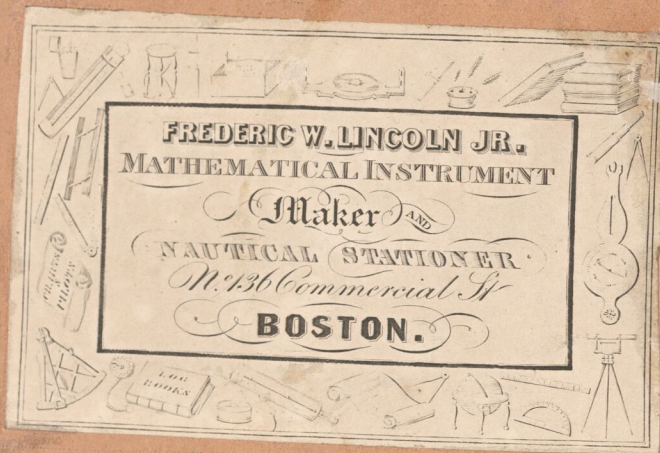 FREDERIC W. LINCOLN JR.
MATHEMATICAL INSTRUMENT
Maker AND
NAUTICAL STATIONER
No. 136 Commercial St
BOSTON.
CHARTS
&
PILOTS
LOG
BOOKS